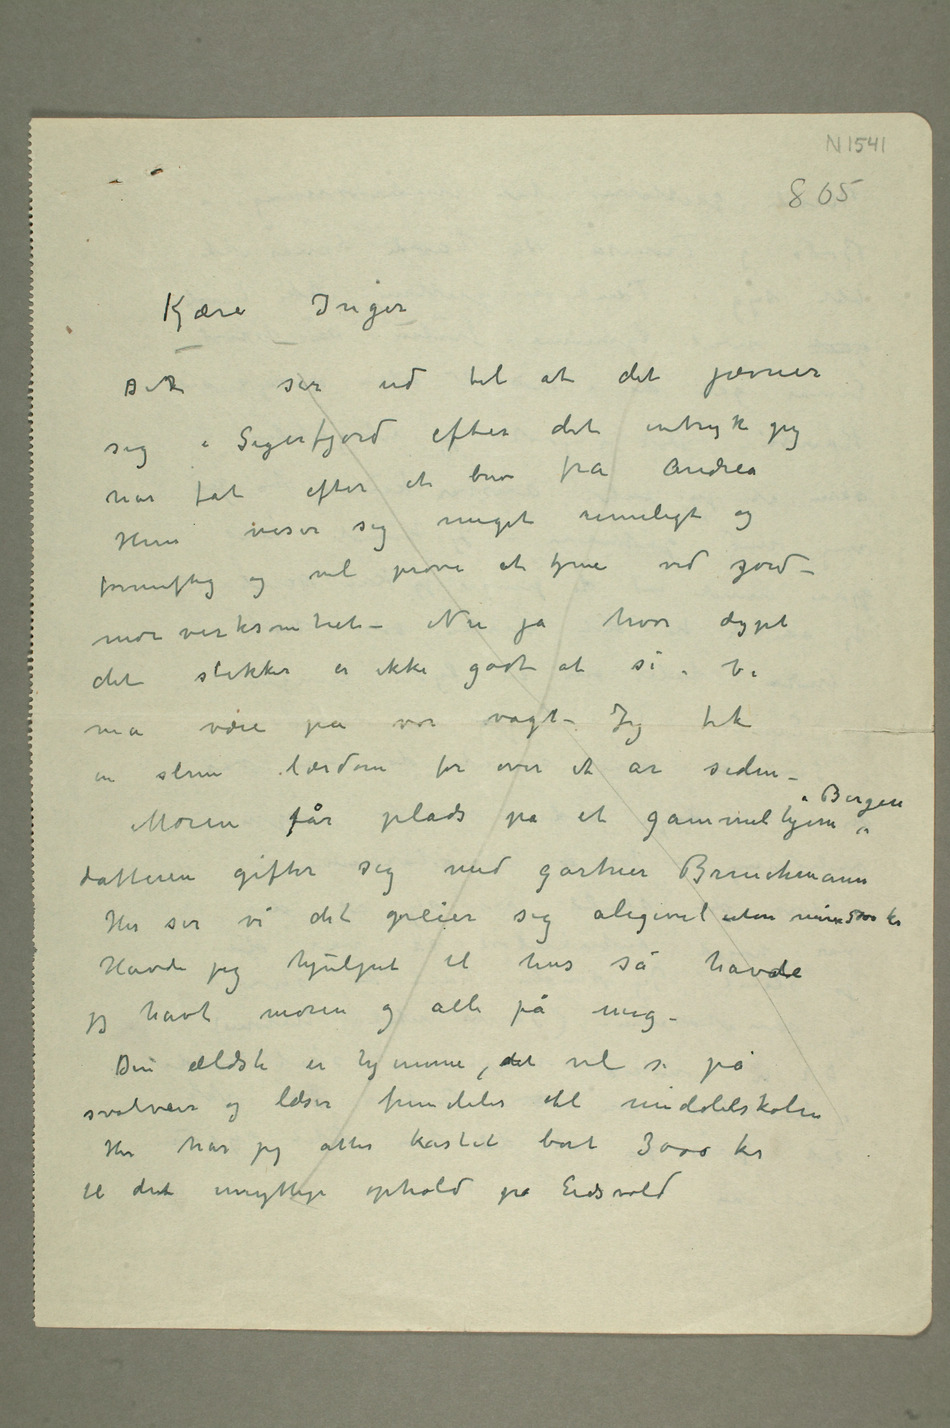 N 1541
805
Kjære Inger
Det ser ud til at det jævner
sig i Sigerfjord efter det intryk jeg
har fåt efter et brev fra Andrea
Hun viser sig meget rimeligt og
fornuftig og vil prøve at tjene ved jord-
mor verksomhet – Nu ja hvor dypt
det stikker er ikke godt at si. Vi
må være på vor vagt – Jeg fik
en slem lærdom for over et år siden –
Moren får plads på et gammelhjem i Bergen
datteren gifter sig med gartner Bruchmann
Her ser vi det greier sig aligevel uden mine 5000 kr
Havde jeg hjulpet til hus så havde
jeg havt moren og alle på mig –
Den ældste er hjemme, det vil si på
svolvær og læser fremdeles til middelskolen
Her har jeg atter kastet bort 3000 kr
til det unyttige ophold på Eidsvold